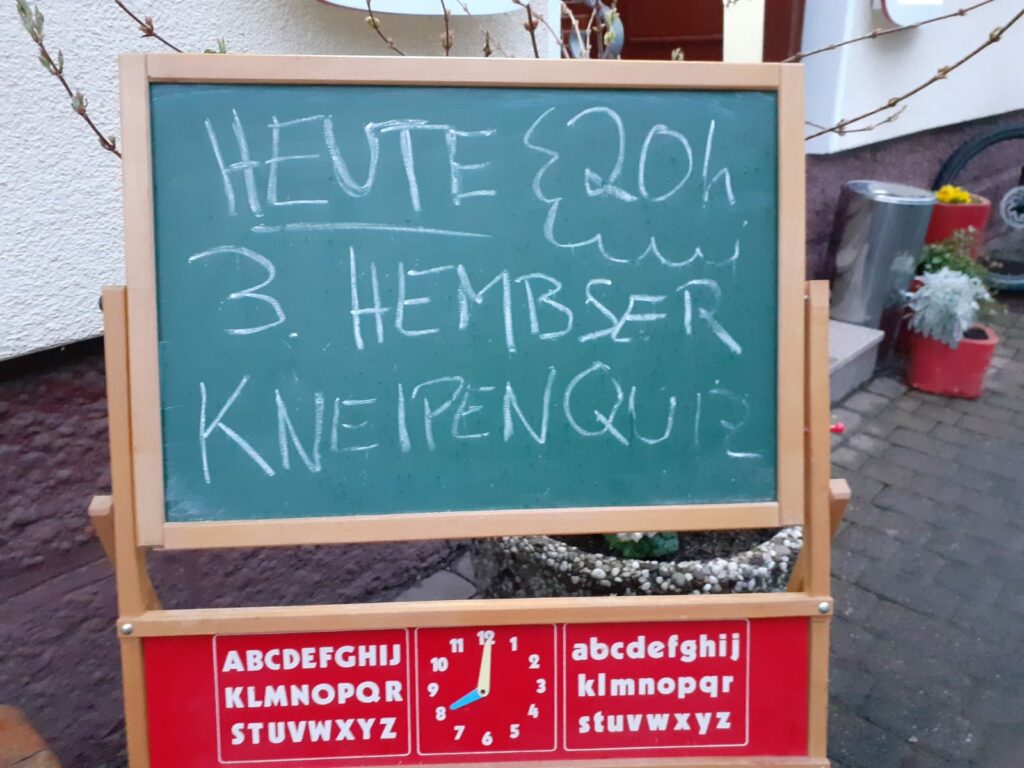 HEUTE 20h
3. HEMBSER
KNEIPENQUIZ
ABCDEFGHIJ
KLMNOPQR
STUVWXYZ
12
1
2
3
4
5
6
7
8
9
10
11
abcdefghij
klmnopqr
stuvwxyz